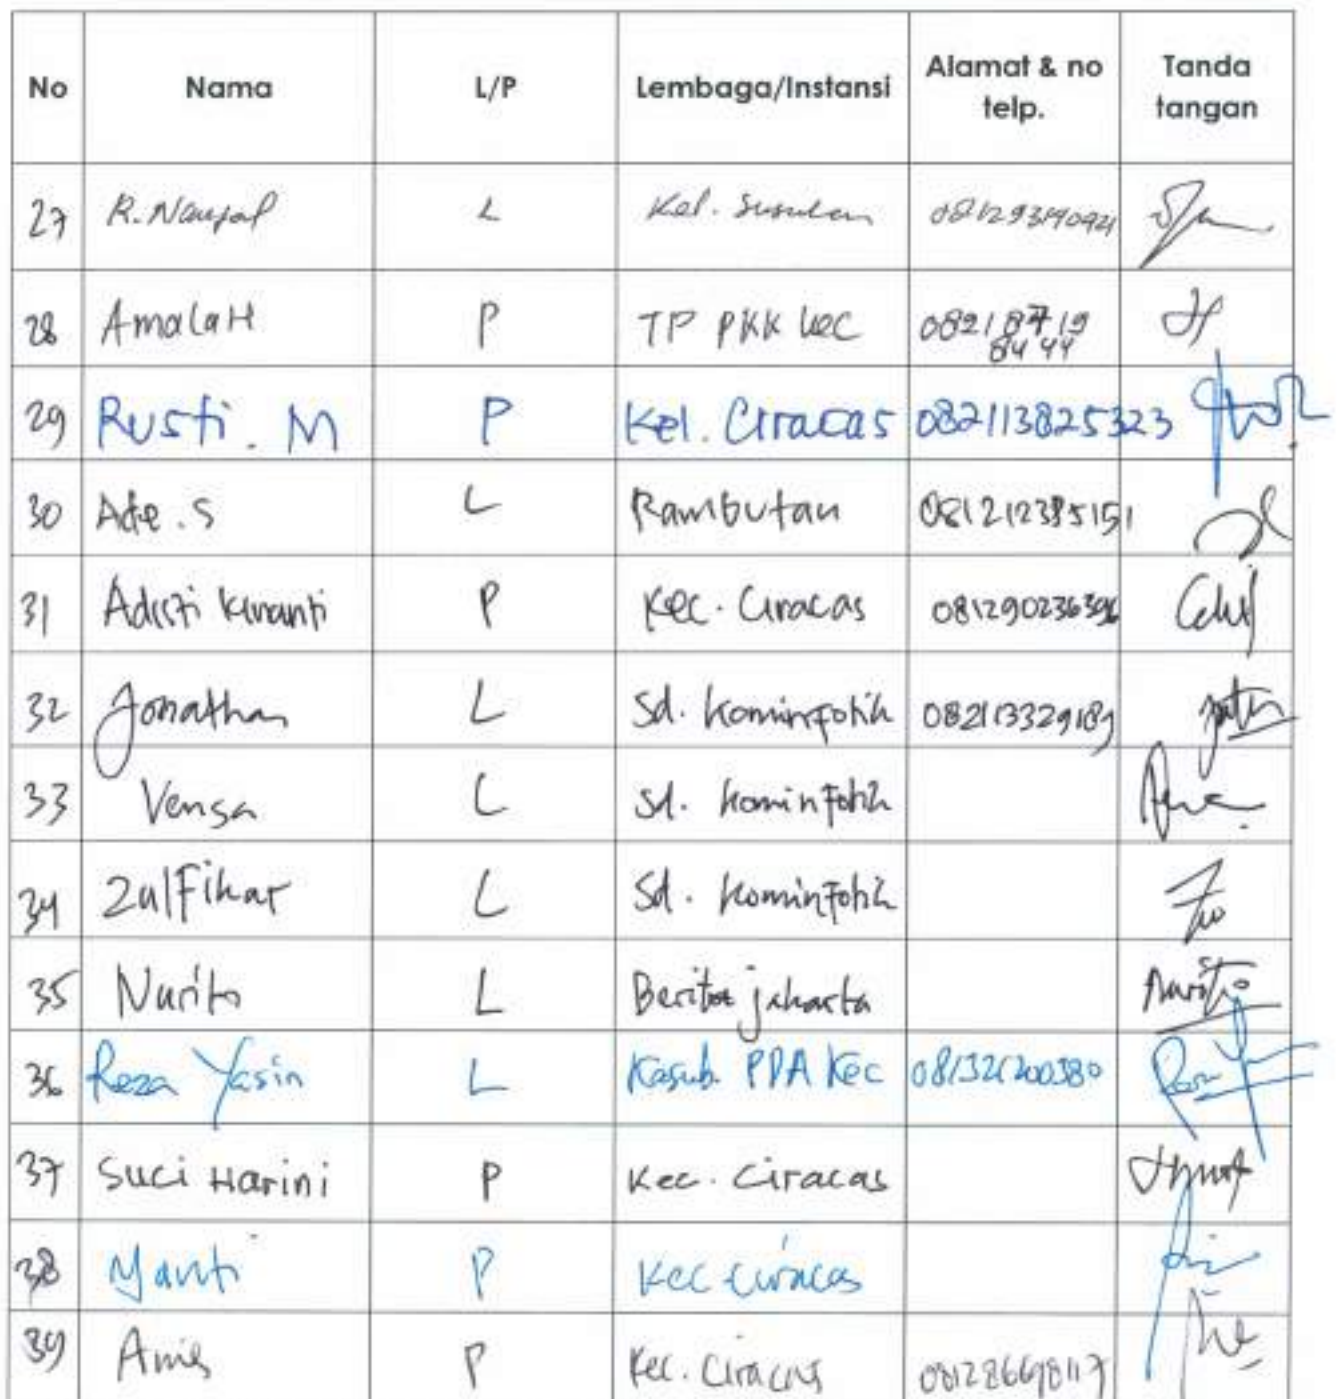 No Nama L/P Lembaga/Instansi Alamat & no telp. Tanda tangan
27 R. Naufal L Kel. Susukan
28 Amalah P TP PKK Kec 0821 8719 8444
29 Rusti. M P Kel. Ciracas 082113825323
30 Ade. S L Rambutan 081212385151
31 Adisti Kiranti P Kec. Ciracas 081290236396
32 Jonathan L Sd. Kominfotik 082113329189
33 Vensa L Sd. Kominfotik
34 Zulfikar L Sd. Kominfotik
35 Narito L Berita jakarta Narito
36 Reza Yasin L Kasub. PPA Kec 081321200380
37 Suci Harini P Kec. Ciracas
38 Yanti P Kec Ciracas
39 Anis P Kec. Ciracas 081286698117